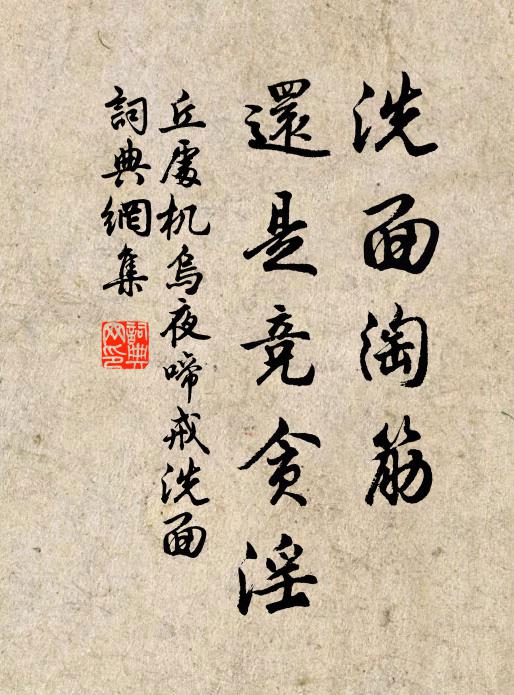 洗面淘筋
還是竞貪淫
丘處机烏夜啼戒洗面
詞典網集
詞典網印